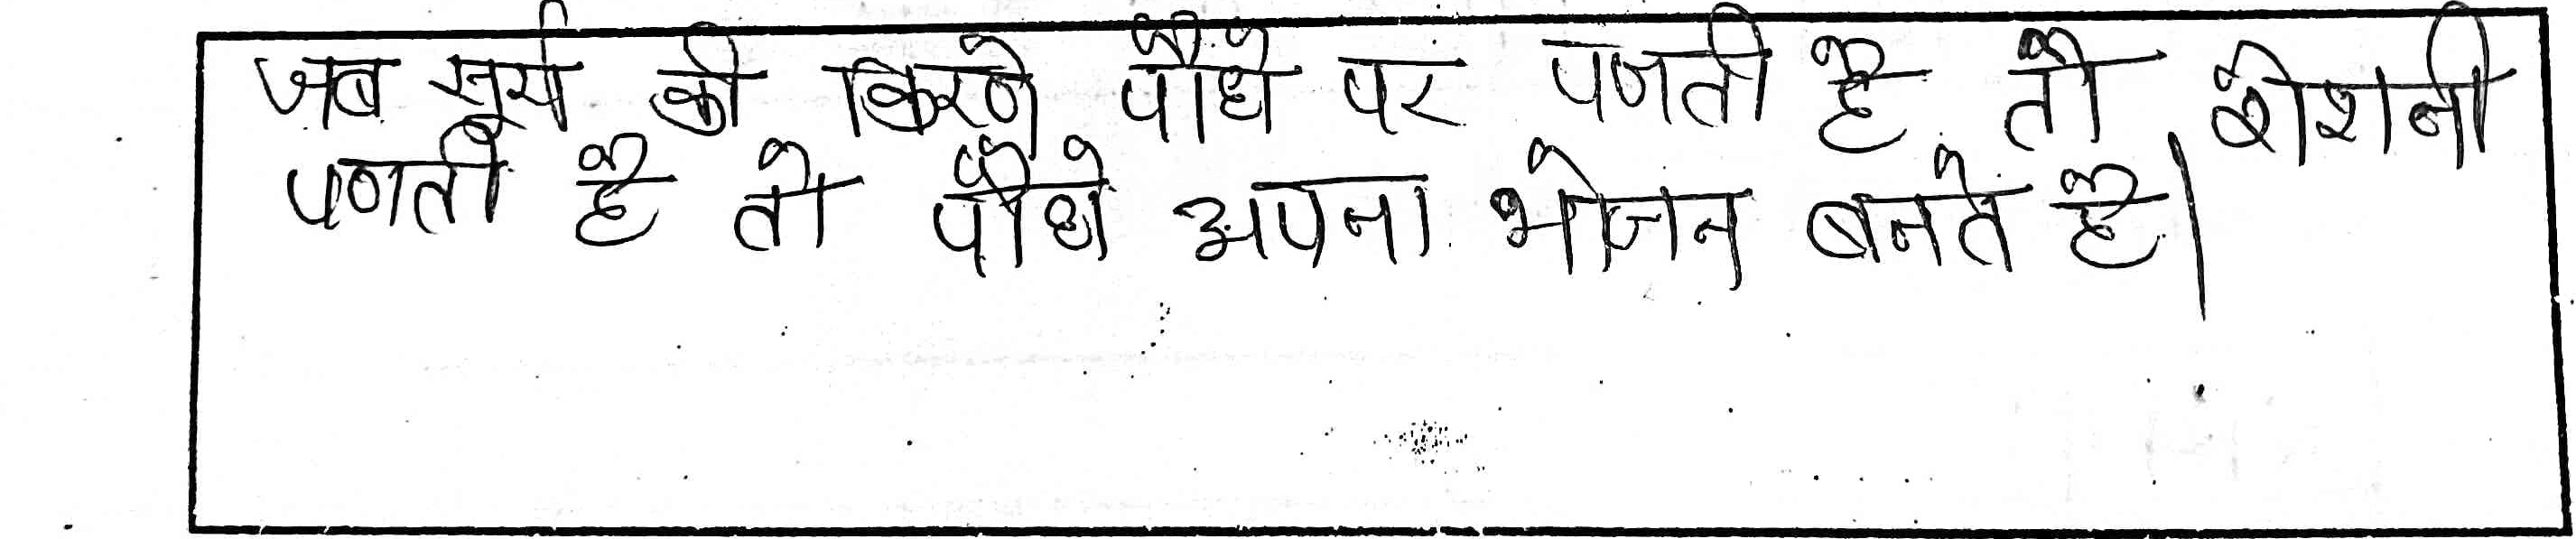 जब सूर्य की किरणे पौधे पर पणती है तो रोशनी
पणती है तो पौधे अपना भोजन बनते है।